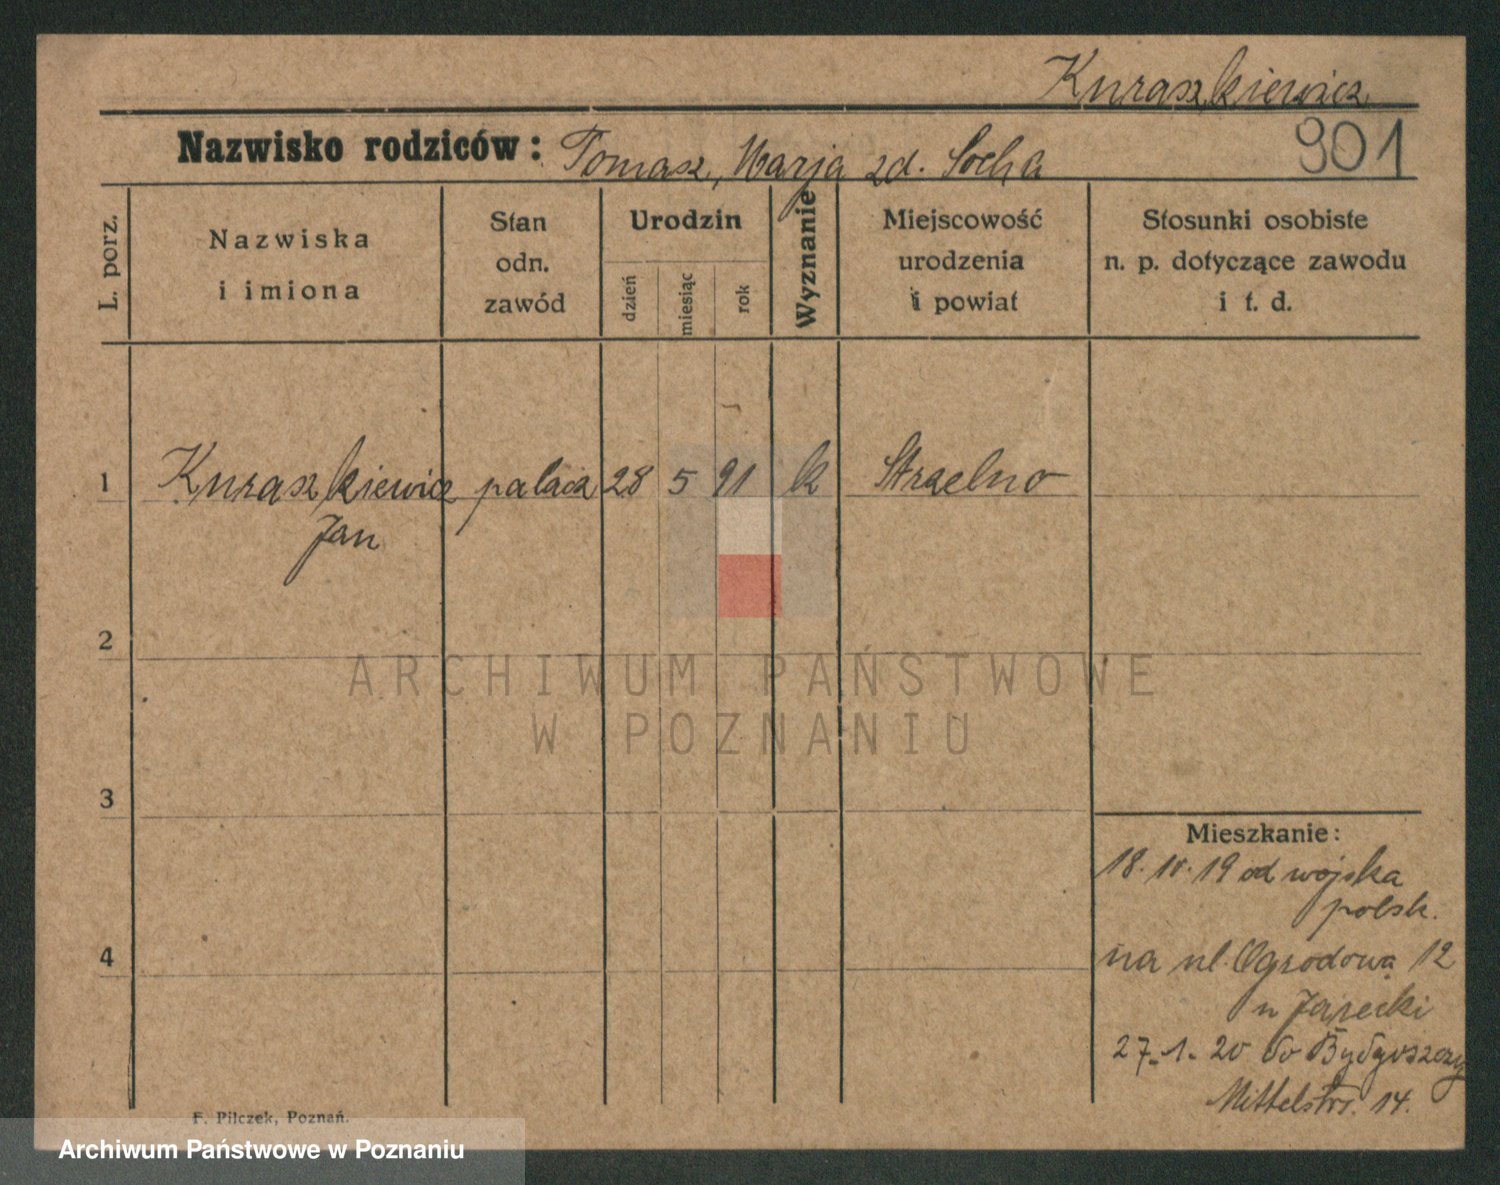 Kuraszkiewicz
Nazwisko rodziców: Tomasz, Marja zd. Socha 901
L. porz.
Nazwiska i imiona
Stan odn. zawód
Urodzin
dzień
miesiąc
rok
Wyznanie
Miejscowość urodzenia i powiat
Stosunki osobiste n. p. dotyczące zawodu i t. d.
1 Kuraszkiewicz palacz 28 5 91 k Strzelno
Jan
2
ARCHIWUM PAŃSTWOWE
W POZNANIU
3
Mieszkanie:
18. 10. 19 od wojska
polsk.
4
na ul. Ogrodową 12
u Jarecki
27. 1. 20 do Bydgoszczy
Mittelstr. 14.
F. Pilczek, Poznań.
Archiwum Państwowe w Poznaniu